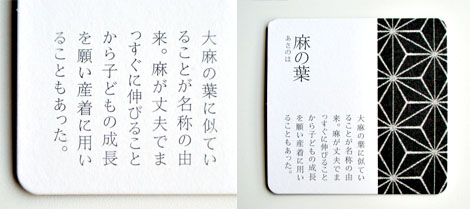 大麻の葉に似てい
ることが名称の由
来。麻が丈夫でま
っすぐに伸びること
から子どもの成長
を願い産着に用い
ることもあった。
麻の葉
あさのは
大麻の葉に似てい
ることが名称の由
来。麻が丈夫でま
っすぐに伸びること
から子どもの成長
を願い産着に用い
ることもあった。